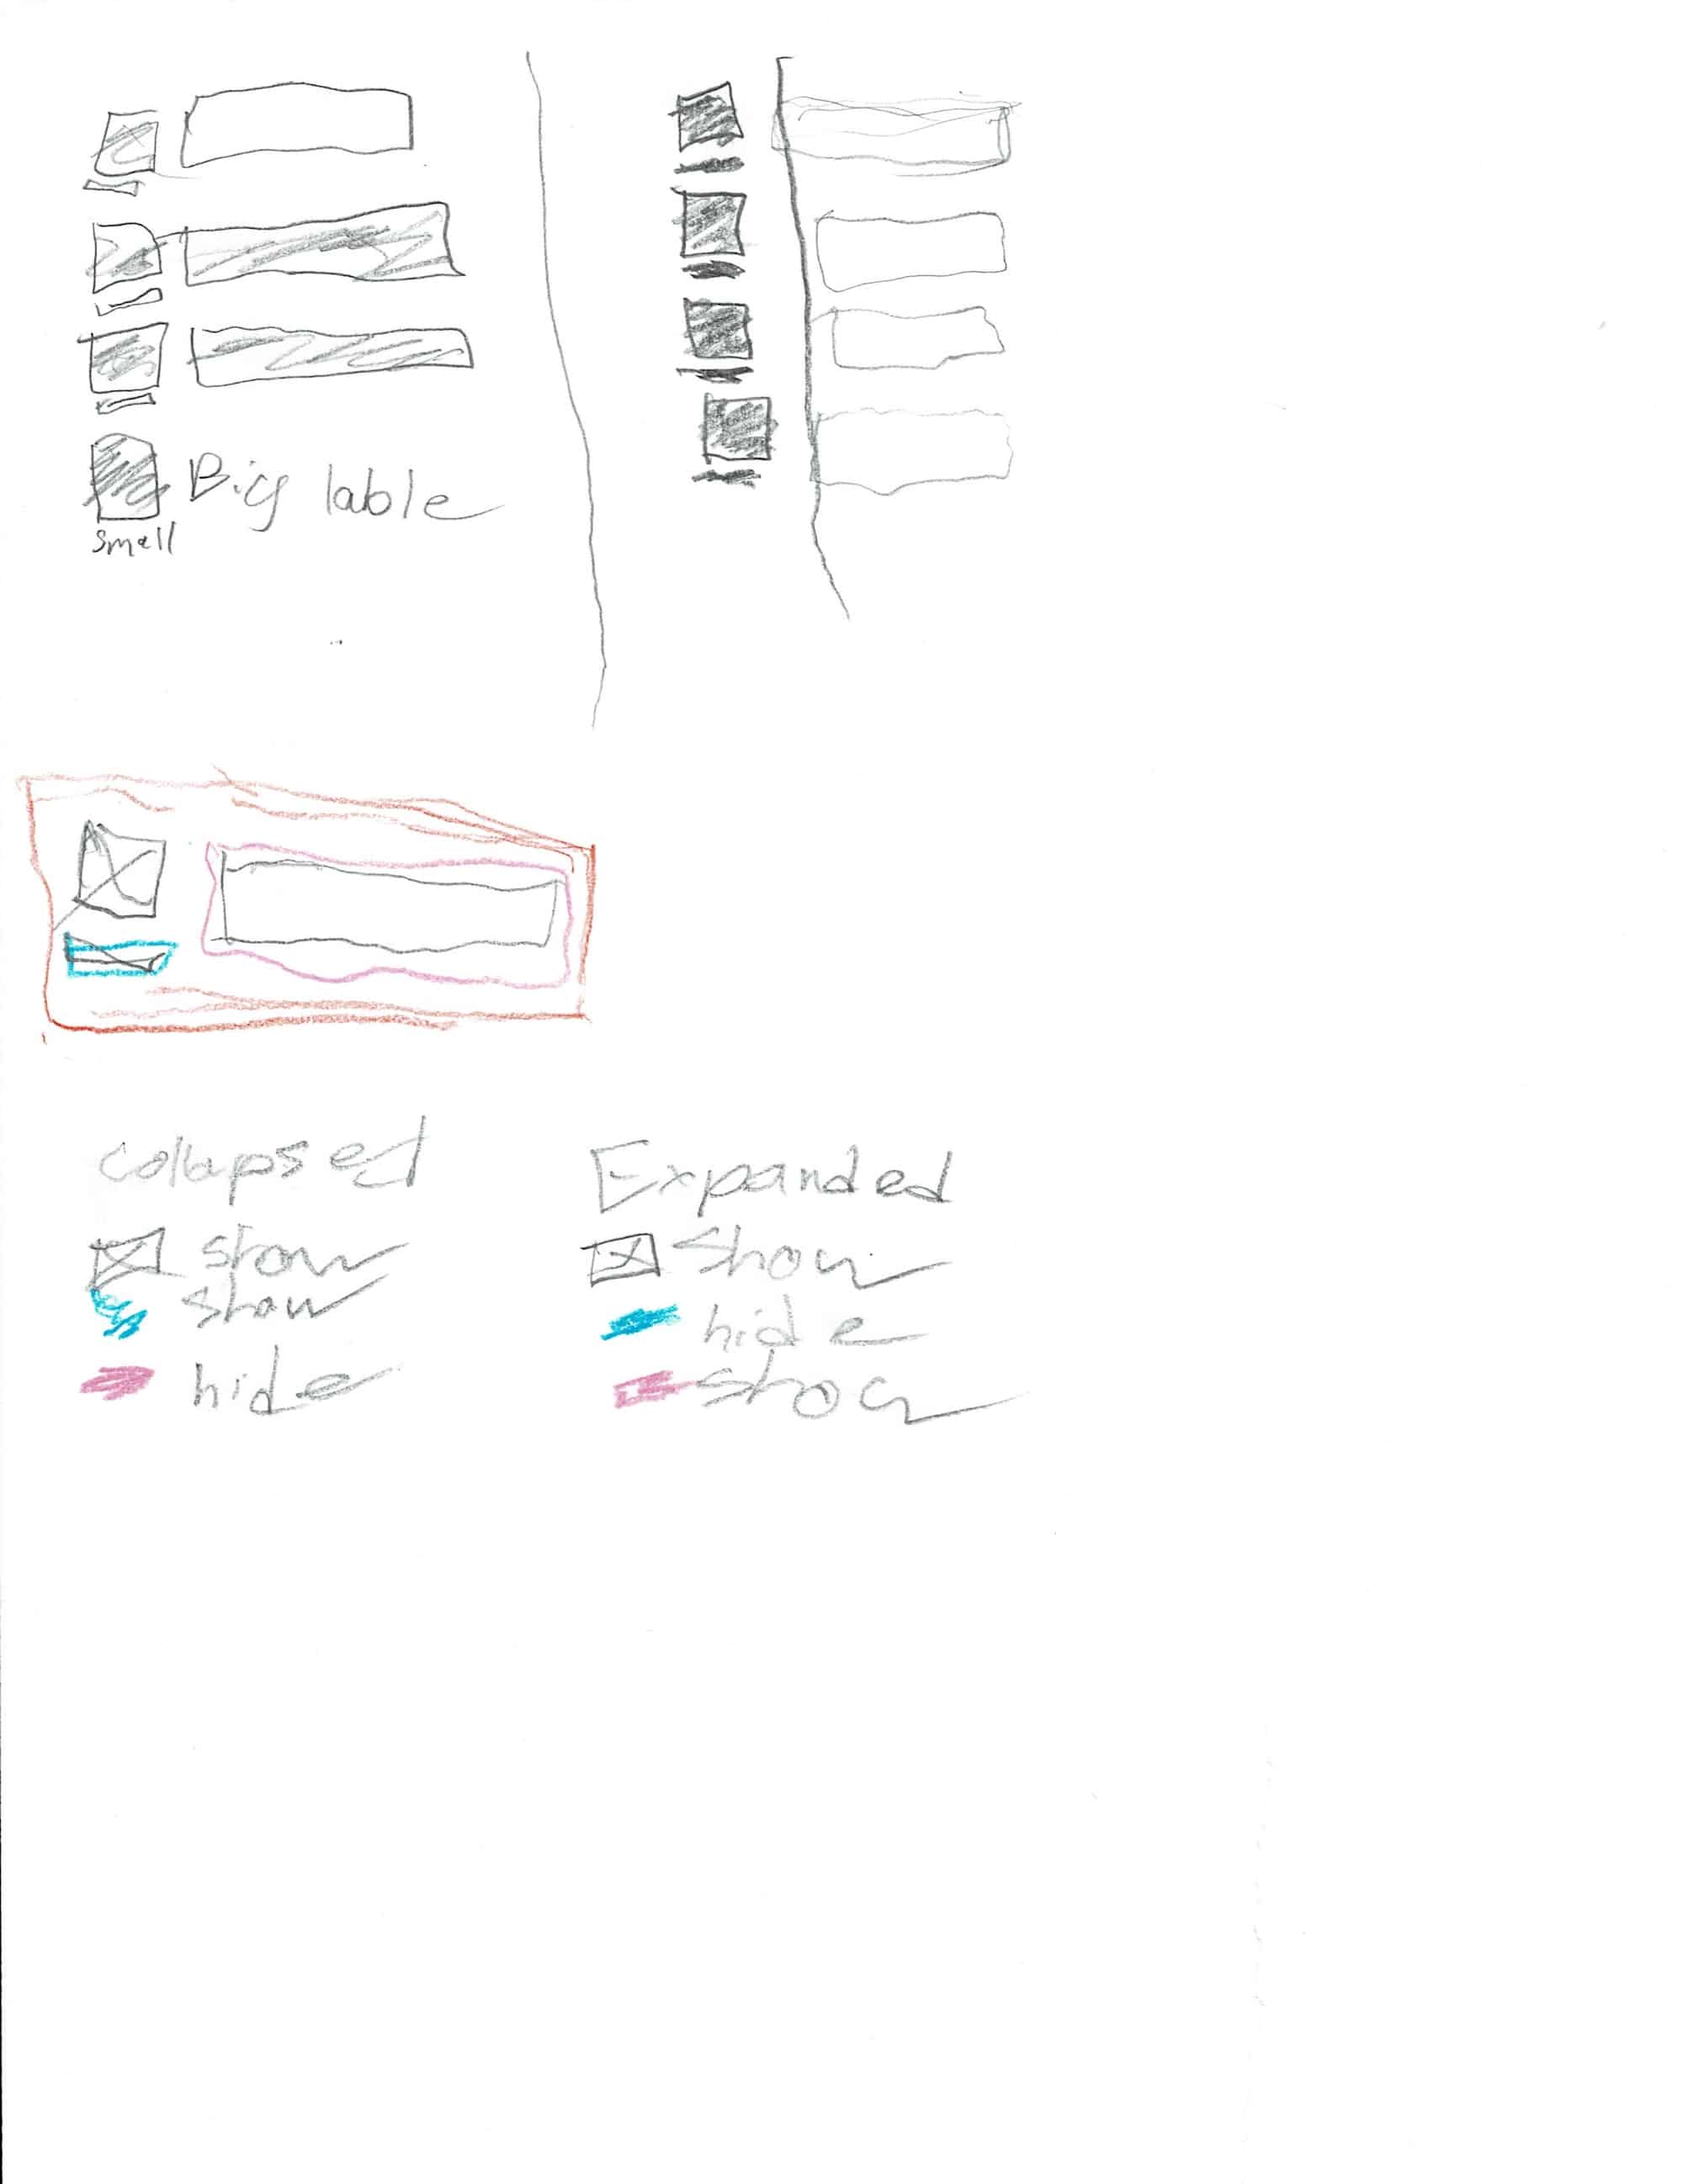 Big lable
small
collapsed
show
show
hide
Expanded
show
hide
show